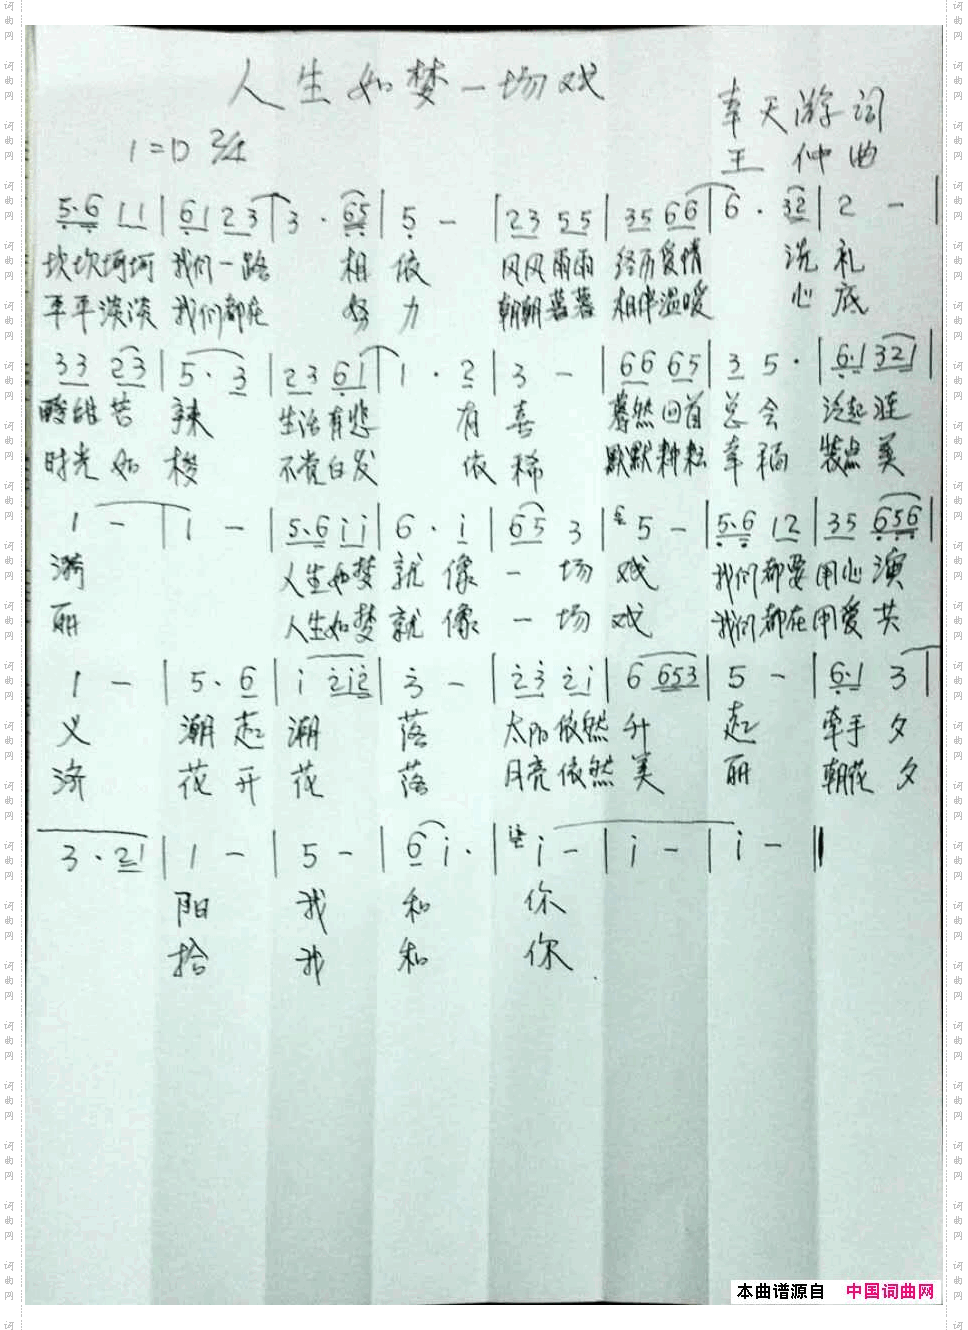 人生如梦一场戏
奉天游 词
1=D 2/4
王 仲 曲
5·6 11 | 61 23 | 3 · 65 | 5 - | 23 55 | 35 66 | 6 · 32 | 2 - |
坎坎坷坷 我们一路 相 依 风风雨雨 经历爱情 洗 礼
平平淡淡 我们都在 努 力 朝朝暮暮 相伴温暖 心 底
33 23 | 5 · 3 | 23 61 | 1 · 2 | 3 - | 66 65 | 3 5 · | 6·1 321 |
酸甜苦 辣 生活有悲 有 喜 蓦然回首 总 会 泛起涟
时光如 梭 不觉白发 依 稀 默默耕耘 幸 福 装点美
1 - | 1 - | 5·6 i i | 6 · i | 65 3 | 5 - | 5·6 12 | 35 656 |
漪 人生如梦 就 像 一 场 戏 我们都要 用心 演
丽 人生如梦 就 像 一 场 戏 我们都在 用爱 共
1 - | 5 · 6 | i 2i2 | 3 - | 23 2i | 6 653 | 5 - | 6·1 3 |
义 潮 起 潮 落 太阳 依然 升 起 牵手 夕
济 花 开 花 落 月亮 依然 美 丽 朝花 夕
3 · 21 | 1 - | 5 - | 6 i · | i - | i - | i - ||
阳 我 和 你
拾 我 和 你
本曲谱源自 中国词曲网